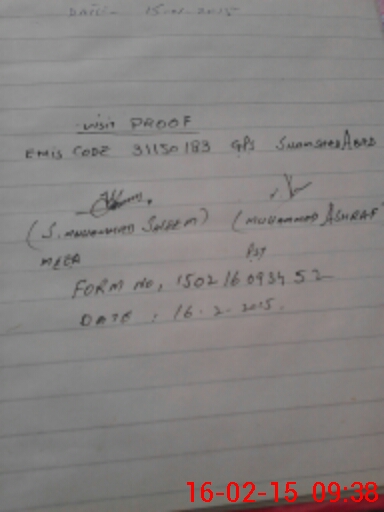 DATE - 15-01-2015
visit PROOF
EMIS CODE 31150183 GPS SHAMSHADABAD
(S. MUHAMMAD SALEEM) (MUHAMMAD ASHRAF)
MEEA PST
FORM NO, 150216093452
DATE : 16.2.2015.
16-02-15 09:38